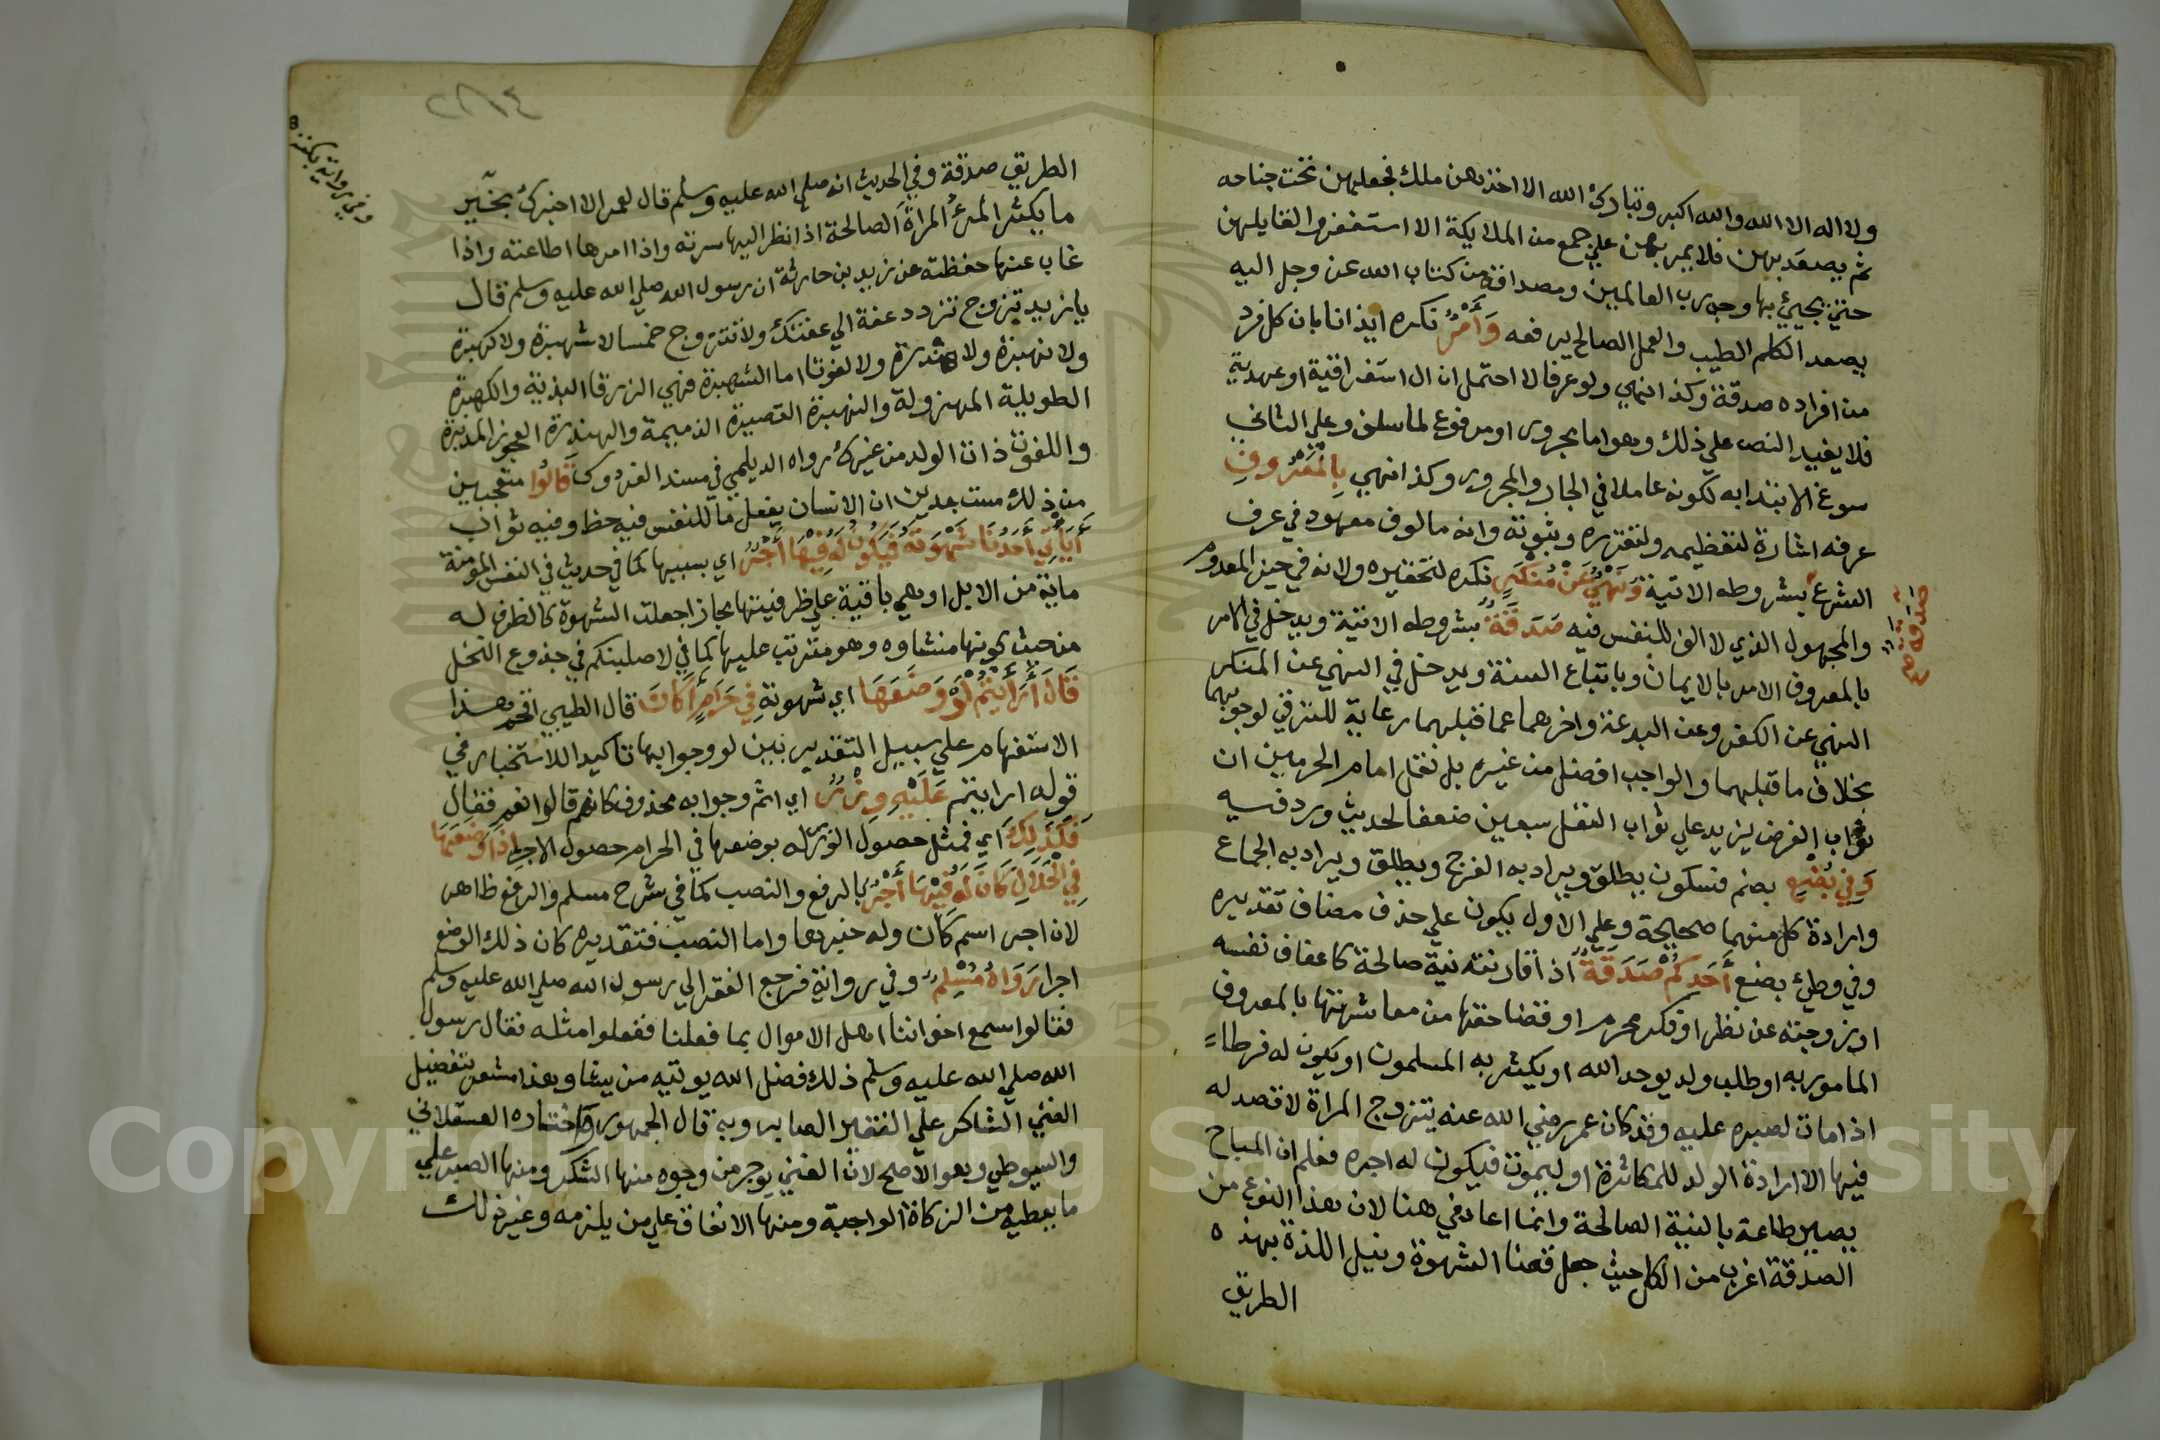 ولا اله الا الله والله اكبر وتبارك الله الا اخذهن ملك فجعلهن تحت جناحه
ثم يصعد بهن فلا يمر بهن علي جمع من الملايكة الا استغفروا لقايلهن
حتي يجيئ بها وجه رب العالمين ومصداقه من كتاب الله عز وجل اليه
يصعد الكلم الطيب والعمل الصالح يرفعه وَأَمْرٌ نكره ايذانا بان كل فرد
من افراده صدقة وكذا نهي ولو عرفا لاحتمل ان ال استغراقية او عهدية
فلا يفيد النص علي ذلك وهو اما مجرور او مرفوع لما سلف وعلي الثاني
سوغ الابتدا به لكونه عاملا في الجار والمجرور وكذا نهي بِالْمَعْرُوفِ
عرفه اشارة لتعظيمه ولتقرره وثبوته وانه مالوف معهود في عرف
الشرع بشروطه الاتية وَنَهْيٌ عَنْ مُنْكَرٍ نكره لتحقيره ولانه في حيز المعدوم
والمجهول الذي لا الف للنفس فيه صَدَقَةٌ بشروطه الاتية ويدخل في الامر
بالمعروف الامر بالايمان وباتباع السنة ويدخل في النهي عن المنكر
النهي عن الكفر وعن البدعة واخرهما عما قبلهما رعاية للترقي لوجوبهما
بخلاف ما قبلهما والواجب افضل من غيره بل نقل امام الحرمين ان
ثواب الفرض يزيد علي ثواب النفل سبعين ضعفا لحديث ورد فيه
وَفِي بُضْعِ بضم فسكون يطلق ويراد به الفرج ويطلق ويراد به الجماع
وارادة كل منهما صحيحة وعلي الاول يكون علي حذف مضاف تقديره
وفي وطئ بضع أَحَدِكُمْ صَدَقَةٌ اذا قارنته نية صالحة كاعفاف نفسه
او زوجته عن نظر او فكر محرم او قضا حقها من معاشرتها بالمعروف
المامور به او طلب ولد يوحد الله او يكثر به المسلمون او يكون له فرطا
اذا مات لصبره عليه وقد كان عمر رضي الله عنه يتزوج المراة لا قصد له
فيها الا ارادة الولد للمكاثرة او ليموت فيكون له اجره فعلم ان المباح
يصير طاعة بالنية الصالحة وانما اعاد في هنا لان هذا النوع من
الصدقة اغرب من الكل حيث جعل قضا الشهوة ونيل اللذة بهذه
الطريق
صدقة
الطريق صدقة وفي الحديث انه صلي الله عليه وسلم قال لعمر الا اخبرك بخير
ما يكثر المرء المراة الصالحة اذا نظر اليها سرته واذا امرها اطاعته واذا
غاب عنها حفظته عن زيد بن حارثة ان رسول الله صلي الله عليه وسلم قال
يا زيد تزوج تزدد عفة الي عفتك ولا تتزوج خمسا لا شهبرة ولا لهبرة
ولا نهبرة ولا هندرة ولا لفوتا اما الشهبرة فهي الزرقا البذية واللهبرة
الطويلة المهزولة والنهبرة القصيرة الذميمة والهندرة العجوز المدبرة
واللفوت ذات الولد من غيرك رواه الديلمي في مسند الفردوس قَالُوا متعجبين
من ذلك مستبعدين ان الانسان يفعل ما للنفس فيه حظ وفيه ثواب
أَيَأْتِي أَحَدُنَا شَهْوَتَهُ فَيَكُونُ لَهُ فِيْهَا أَجْرٌ اي بسببها كما في حديث في النفس المؤمنة
ماية من الابل او هي باقية علي ظرفيتها مجازا جعلت الشهوة كالظرف له
من حيث كونها منشاوه وهو مترتب عليها كما في لاصلبنكم في جذوع النخل
قَالَ أَرَأَيْتُمْ لَوْ وَضَعَهَا اي شهوته فِي حَرَامٍ أَكَانَ قال الطيبي اقحم هذا
الاستفهام علي سبيل التقدير بين لو وجوابها تاكيدا للاستخبار في
قوله ارايتم عَلَيْهِ وِزْرٌ اي اثم وجوابه محذوف كانهم قالوا نعم فقال
فَكَذَلِكَ اي فمثل حصول الوزر له بوضعها في الحرام حصول الاجر إِذَا وَضَعَهَا
فِي الْحَلَالِ كَانَ لَهُ فِيْهَا أَجْرٌ بالرفع والنصب كما في شرح مسلم والرفع ظاهر
لان اجر اسم كان وله خبرها واما النصب فتقديره كان ذلك الوضع
اجرا رَوَاهُ مُسْلِمٌ وفي رواية فرجع الفقرا الي رسول الله صلي الله عليه وسلم
فقالوا سمع اخواننا اهل الاموال بما فعلنا ففعلوا مثله فقال رسول
الله صلي الله عليه وسلم ذلك فضل الله يوتيه من يشا وهذا مشعر بتفضيل
الغني الشاكر علي الفقير الصابر وبه قال الجمهور واختاره العسقلاني
والسيوطي وهو الاصح لان الغني يوجر من وجوه منها الشكر ومنها الصبر علي
ما يعطيه من الزكاة الواجبة ومنها الانفاق علي من يلزمه وغير ذلك
Copyright © King Saud University